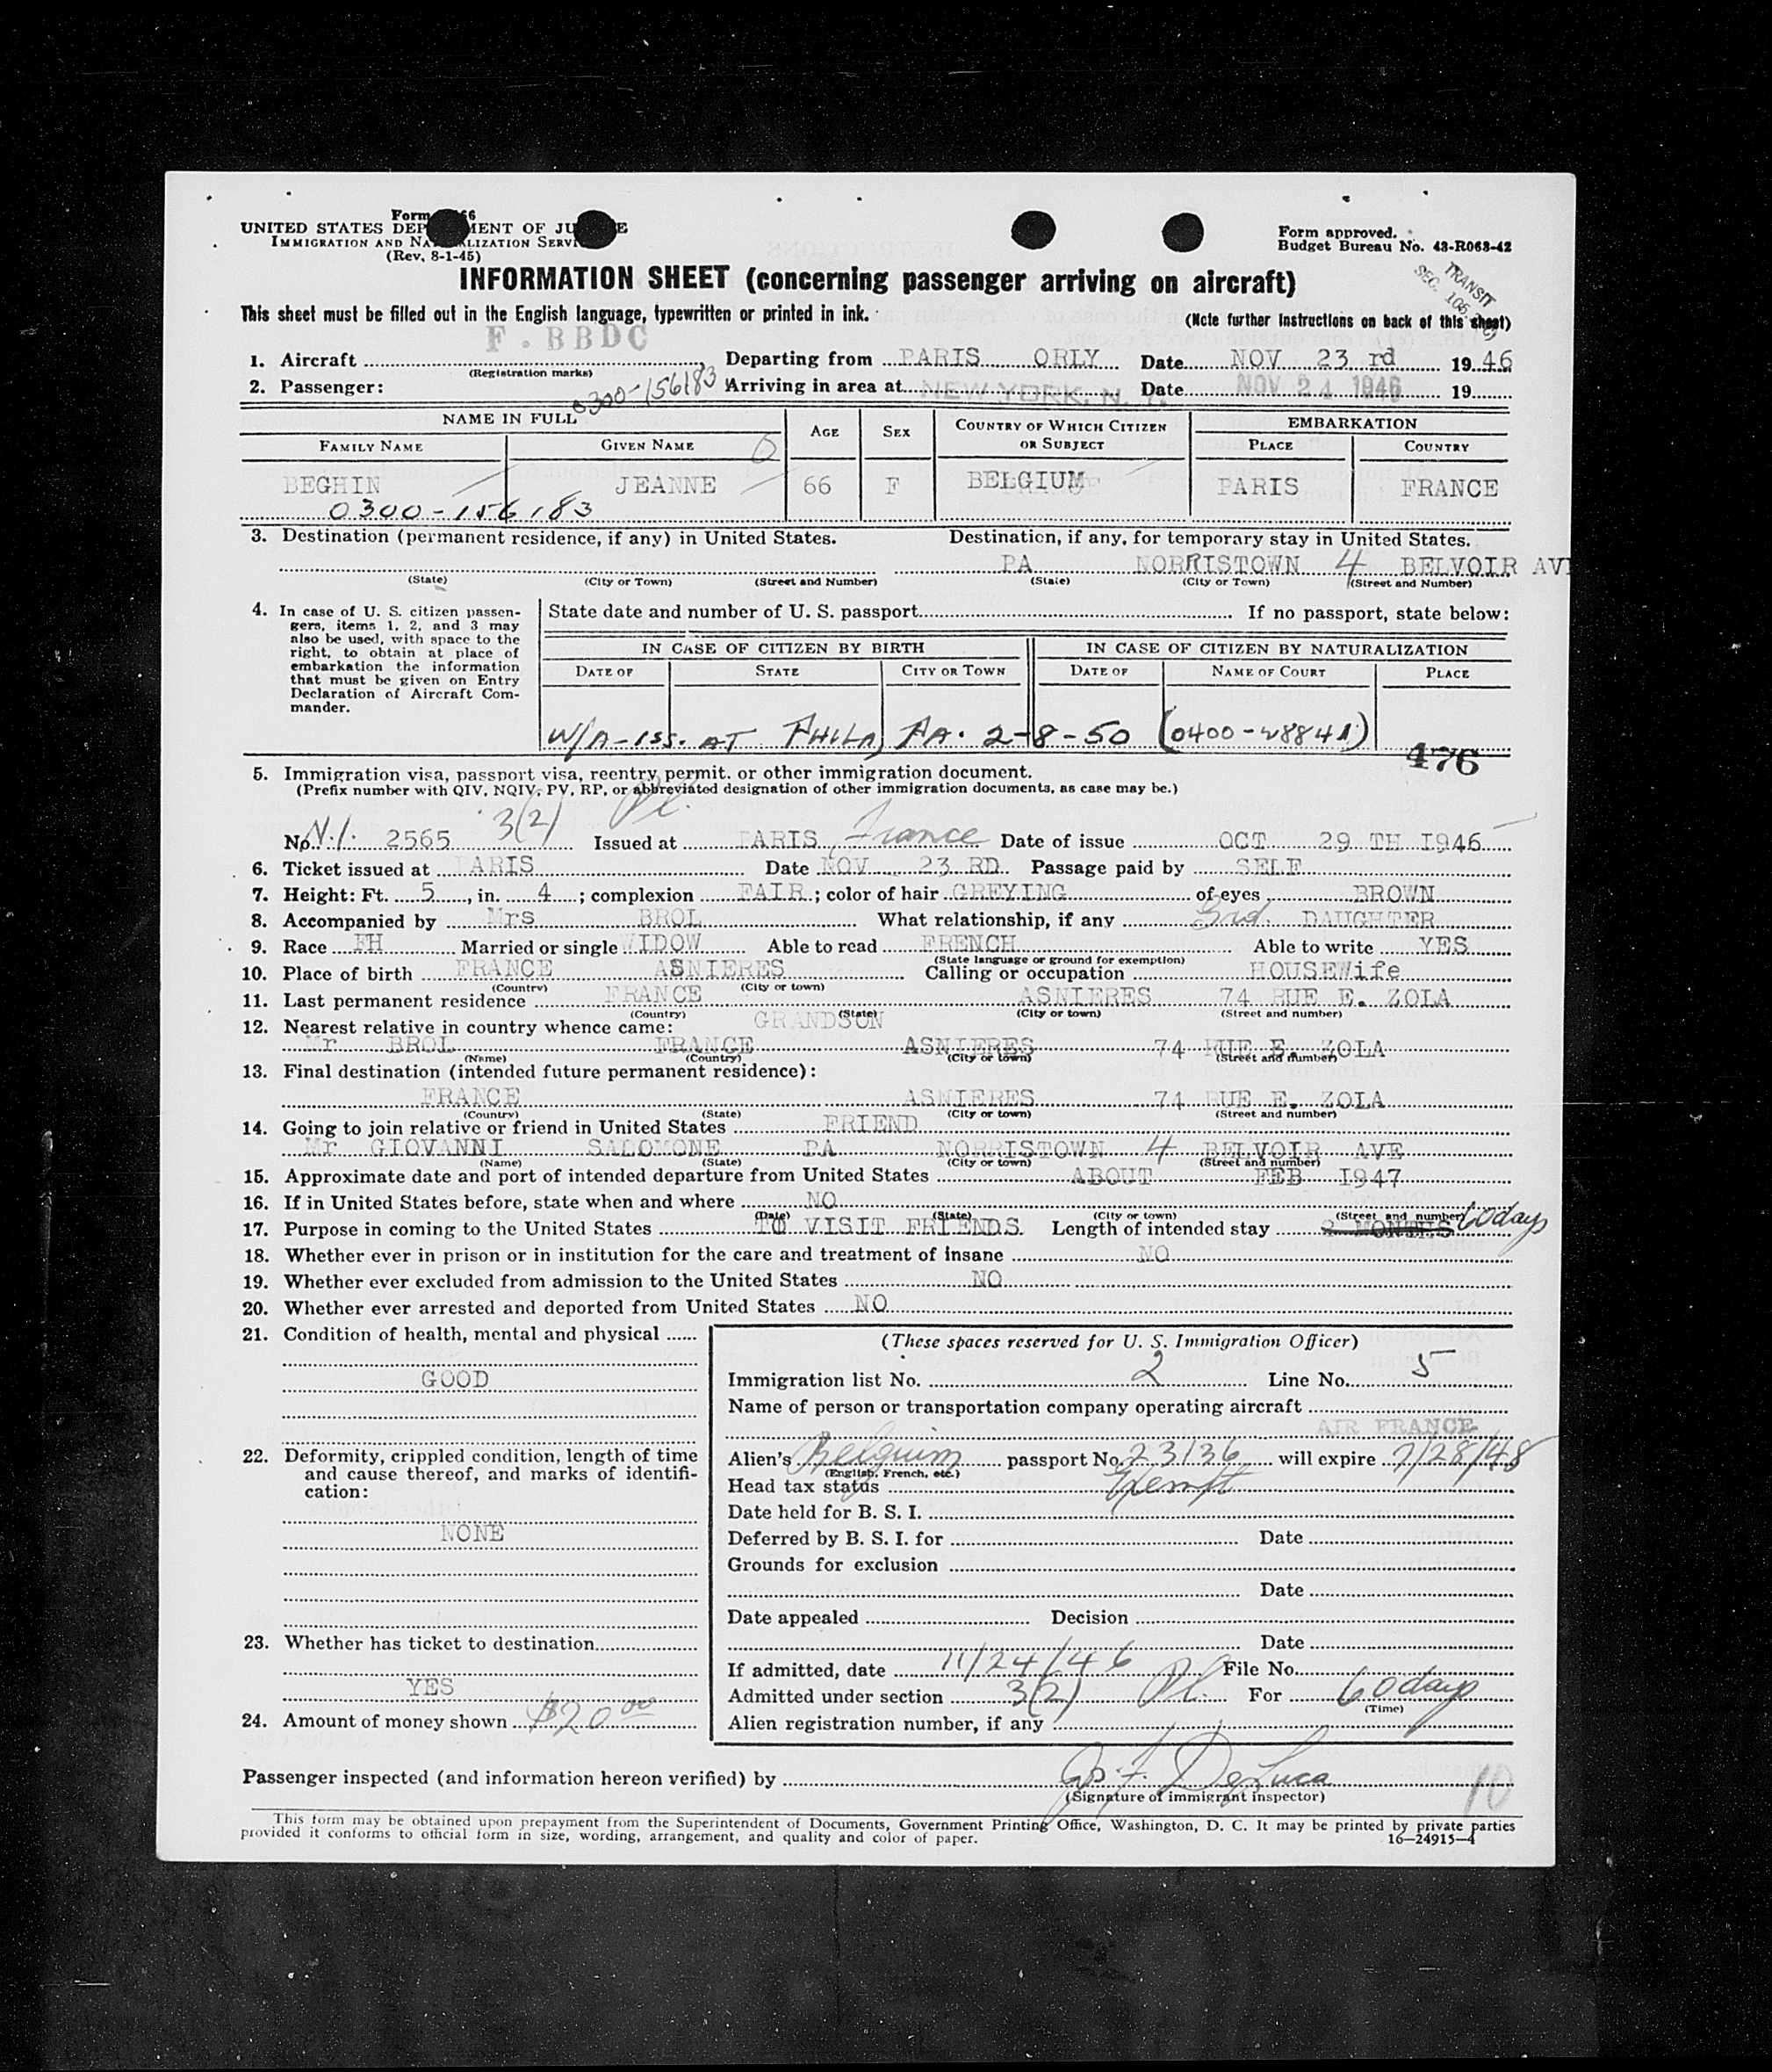 Form 66
UNITED STATES DEP MENT OF JU E
IMMIGRATION AND NA LIZATION SERVI
(Rev. 8-1-45)
Form approved.
Budget Bureau No. 43-R063-42
TRANSIT
INFORMATION SHEET (concerning passenger arriving on aircraft)
This sheet must be filled out in the English language, typewritten or printed in ink.
(Note further instructions on back of this sheet)
F. BBDC
1. Aircraft (Registration marks) Departing from PARIS ORLY Date NOV 23 rd 1946
2. Passenger: 0300-156183 Arriving in area at NEW YORK, N. Y. Date NOV 24 1946 19
NAME IN FULL AGE SEX COUNTRY OF WHICH CITIZEN OR SUBJECT EMBARKATION
FAMILY NAME GIVEN NAME PLACE COUNTRY
BEGHIN JEANNE 66 F BELGIUM PARIS FRANCE
0300-156183
3. Destination (permanent residence, if any) in United States. Destination, if any, for temporary stay in United States.
PA NORRISTOWN 4 BELVOIR AV
(State) (City or Town) (Street and Number) (State) (City or Town) (Street and Number)
4. In case of U. S. citizen passen-
gers, items 1, 2, and 3 may
also be used, with space to the
right, to obtain at place of
embarkation the information
that must be given on Entry
Declaration of Aircraft Com-
mander.
State date and number of U. S. passport If no passport, state below:
IN CASE OF CITIZEN BY BIRTH IN CASE OF CITIZEN BY NATURALIZATION
DATE OF STATE CITY OR TOWN DATE OF NAME OF COURT PLACE
W/A-ISS. AT PHILA, PA. 2-8-50 (0400-28841)
476
5. Immigration visa, passport visa, reentry permit, or other immigration document.
(Prefix number with QIV, NQIV, PV, RP, or abbreviated designation of other immigration documents, as case may be.)
No. 2565 3(2) Issued at PARIS, France Date of issue OCT 29 TH I946
6. Ticket issued at PARIS Date NOV 23 RD Passage paid by SELF
7. Height: Ft. 5, in. 4; complexion FAIR; color of hair GREYING of eyes BROWN
8. Accompanied by Mrs BROL What relationship, if any DAUGHTER
9. Race FH Married or single WIDOW Able to read FRENCH Able to write YES
(State language or ground for exemption)
10. Place of birth FRANCE ASNIERES Calling or occupation HOUSEWife
(Country) (City or town)
11. Last permanent residence FRANCE ASNIERES 74 RUE E. ZOLA
(Country) (State) (City or town) (Street and number)
12. Nearest relative in country whence came: GRANDSON
Mr BROL FRANCE ASNIERES 74 RUE E. ZOLA
(Name) (Country) (City or town) (Street and number)
13. Final destination (intended future permanent residence):
FRANCE ASNIERES 74 RUE E. ZOLA
(Country) (State) (City or town) (Street and number)
14. Going to join relative or friend in United States FRIEND
Mr GIOVANNI SALOMONE PA NORRISTOWN 4 BELVOIR AVE
(Name) (State) (City or town) (Street and number)
15. Approximate date and port of intended departure from United States ABOUT FEB I947
16. If in United States before, state when and where NO
(Date) (State) (City or town) (Street and number)
17. Purpose in coming to the United States TO VISIT FRIENDS Length of intended stay 2 MONTHS 60 days
18. Whether ever in prison or in institution for the care and treatment of insane NO
19. Whether ever excluded from admission to the United States NO
20. Whether ever arrested and deported from United States NO
21. Condition of health, mental and physical
GOOD
22. Deformity, crippled condition, length of time
and cause thereof, and marks of identifi-
cation:
NONE
23. Whether has ticket to destination
YES
24. Amount of money shown $20.00
(These spaces reserved for U. S. Immigration Officer)
Immigration list No. 2 Line No. 5
Name of person or transportation company operating aircraft
AIR FRANCE
Alien's Belgium passport No. 23136 will expire 7/28/48
(English, French, etc.)
Head tax status Exempt
Date held for B. S. I.
Deferred by B. S. I. for Date
Grounds for exclusion
Date
Date appealed Decision
Date
If admitted, date 11/24/46 File No.
Admitted under section 3(2) For 60 days
(Time)
Alien registration number, if any
Passenger inspected (and information hereon verified) by Jos. F. DeLuca
(Signature of immigrant inspector)
10
This form may be obtained upon prepayment from the Superintendent of Documents, Government Printing Office, Washington, D. C. It may be printed by private parties
provided it conforms to official form in size, wording, arrangement, and quality and color of paper. 16—24915-4